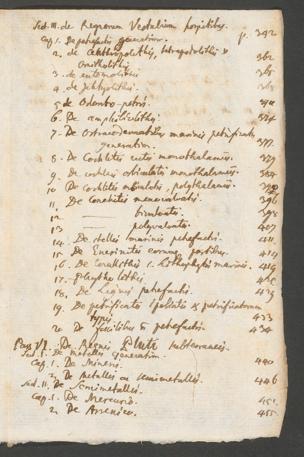 Sect. III. de Regnorum Vestalium porjititus. p. 342
Cap 1. De petrefactis generatim.
2. de Anthropolithis, tetrapodolithis &
Ornitholithis 362
3. de entomolithis 365
4. de Ichthyolithis 368
5 de Odonto-petris. 370
6. De amphibiolithis 374
7. De Ostracodermatibus marinis petrificatis
generatim. 377
8. De Cochlites rectis monothalamiis. 379
9. De cochleis orbiculatis monothalamiis. 384
10 De Cochlitis orbiculatis, polythalamiis.
11. De Conchitis monovalvatis. 396
12 ——— bivalvatis. 398
13 ——— polyvalvatis. 407
14. De stellis marinis petrefactis. 411
15. De Encrinitis eorumq. partibus. 414
16. De Corallithis s. Lithophytis marinis. 419
17. Phytholithis
18. De Lignis petrefactis. 429
19. De petrificatis spoliatis & petrificatorum
typis. 433
20 De fossilibus petrefactis. 434
Pars VI. De Regni Pluti subterraneis.
Sect. I. De Metallis generatim.
Cap. 1. De Mineris. 440
2. De Metallis ac semimetallis. 446
Sect. II. De Semimetallis.
Cap. 1. De Mercurio. 451
2. De Arsenico. 455